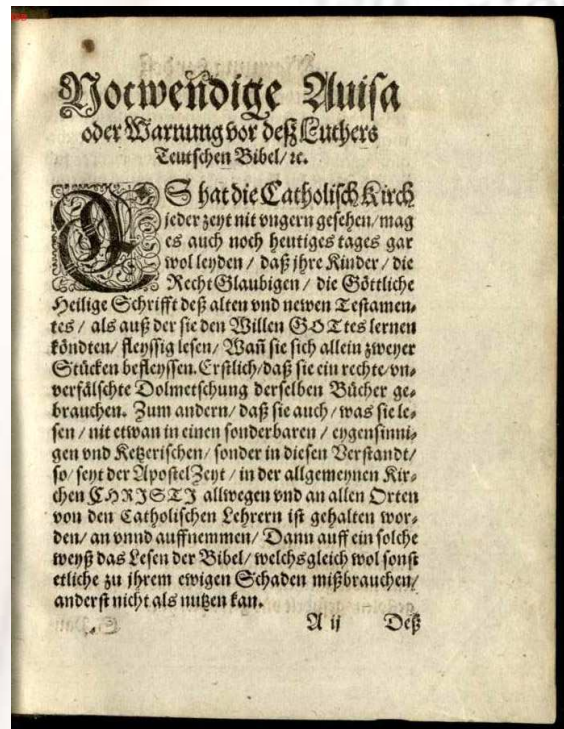 Notwendige Auisa
oder Warnung vor deß Luthers
Teutschen Bibel/ ꝛc.
ES hat die Catholisch Kirch
jeder zeyt nit vngern gesehen/ mag
es auch noch heutiges tages gar
wol leyden / daß jhre Kinder / die
Recht Glaubigen / die Göttliche
Heilige Schrifft deß alten vnd newen Testamen⸗
tes / als auß der sie den Willen GOTtes lernen
köndten/ fleyssig lesen/ Wañ sie sich allein zweyer
Stücken befleyssen. Erstlich/ daß sie ein rechte/ vn⸗
verfälschte Dolmetschung derselben Bücher ge⸗
brauchen. Zum andern/ daß sie auch/ was sie le⸗
sen / nit etwan in einen sonderbaren / eygensinni⸗
gen vnd Ketzerischen/ sonder in diesen Verstandt/
so/ seyt der Apostel Zeyt / in der allgemeynen Kir⸗
chen CHRISTI allwegen vnd an allen Orten
von den Catholischen Lehrern ist gehalten wor⸗
den/ an vnnd auffnemmen/ Dann auff ein solche
weyß das Lesen der Bibel/ welchs gleich wol sonst
etliche zu jhrem ewigen Schaden mißbrauchen/
anderst nicht als nutzen kan.
A ij Deß